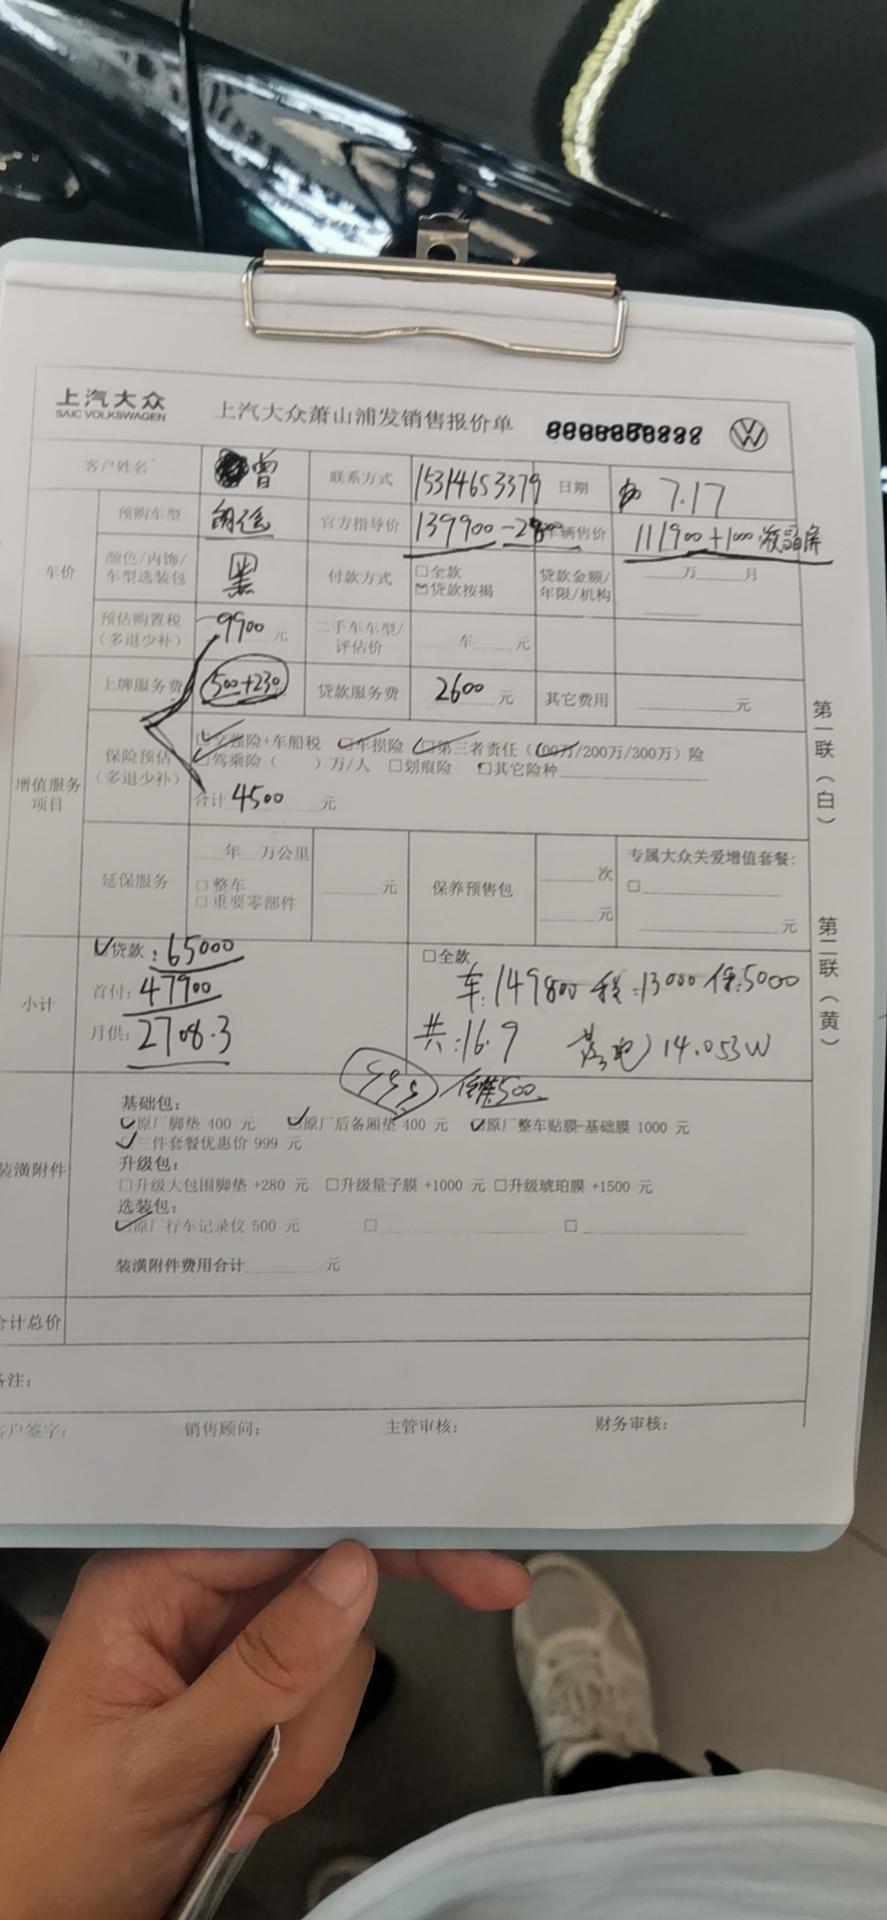 上汽大众
SAIC VOLKSWAGEN
上汽大众萧山浦发销售报价单
客户姓名 曾 联系方式 15314653379 日期 7.17
车价
预购车型 朗逸 官方指导价 139900 车辆售价 111900+1000 液晶屏
颜色/内饰/车型选装包 黑 付款方式 □全款 ☑贷款按揭 贷款金额/年限/机构 万 月
预估购置税(多退少补) 9900 元 二手车车型/评估价 车 元
增值服务项目
上牌服务费 500+230 贷款服务费 2600 元 其它费用 元
保险预估(多退少补)
交强险+车船税 车损险 第三者责任(100万/200万/300万)险
驾乘险( )万/人 □划痕险 □其它险种
合计 4500 元
延保服务 年 万公里 □整车 □重要零部件 元 保养预售包 次 元 专属大众关爱增值套餐: □ 元
小计
贷款: 65000 □全款
首付: 47900 车:149800 税:13000 保:5000
月供: 2708.3 共:16.9 落地 14.053W
500
装潢附件
基础包:
原厂脚垫 400 元 原厂后备厢垫 400 元 原厂整车贴膜-基础膜 1000 元
三件套餐优惠价 999 元
升级包:
□升级大包围脚垫 +280 元 □升级量子膜 +1000 元 □升级琥珀膜 +1500 元
选装包:
原厂行车记录仪 500 元 □ □
装潢附件费用合计 元
合计总价
备注:
客户签字: 销售顾问: 主管审核: 财务审核:
第一联(白)
第二联(黄)